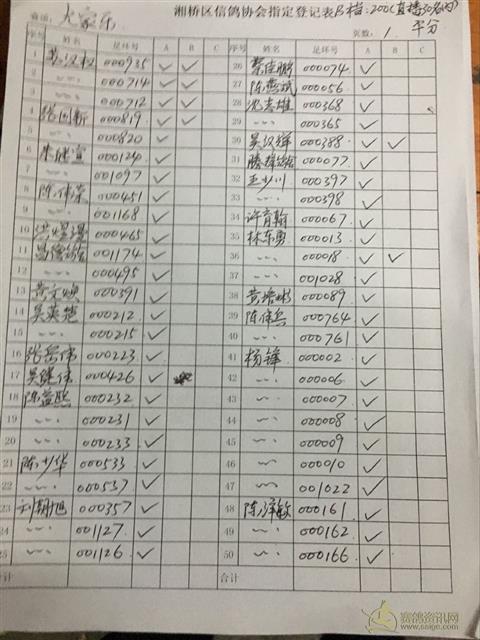 赛项: 大家乐
湘桥区信鸽协会指定登记表B档:200(直播30名内)
页数: 1. 平分
序号 姓名 足环号 A B C 序号 姓名 足环号 A B C
1 000935 ✓ ✓ 26 蔡佳鹏 000074 ✓
2 〃 000714 ✓ ✓ 27 陈燕斌 000056 ✓
3 〃 000712 ✓ ✓ 28 沈志雄 000368 ✓
4 张国新 000819 ✓ ✓ 29 〃 000365 ✓
5 〃 000820 ✓ 30 吴汉辉 000388 ✓ ✓
6 朱继宣 000124 ✓ 31 000077 ✓
7 〃 001097 ✓ 32 王少川 000397 ✓
8 陈伟荣 000451 ✓ 33 〃 000398 ✓
9 〃 001168 ✓ 34 许育翰 000067 ✓
10 000465 ✓ 35 林东勇 000013 ✓
11 001174 ✓ 36 〃 00018 ✓ ✓
12 〃 000495 ✓ 37 〃 001028 ✓
13 黄文焕 000391 ✓ 38 黄培彬 000089 ✓
14 吴英楚 000212 ✓ 39 陈伟兵 000764 ✓
15 〃 000215 ✓ 40 〃 000761 ✓
16 张岳伟 000223 ✓ 41 杨锋 000002 ✓
17 吴继伟 000426 ✓ 42 〃 000006 ✓
18 陈益熙 000232 ✓ 43 〃 000007 ✓
19 〃 000231 ✓ 44 〃 000008 ✓
20 〃 000233 ✓ 45 〃 000009 ✓
21 陈少华 000533 ✓ 46 〃 000010 ✓
22 〃 000537 ✓ 47 〃 001022 ✓
23 刘朝旭 000357 ✓ 48 陈泽敏 000161 ✓
24 〃 001127 ✓ 49 〃 000162 ✓
25 〃 001126 ✓ 50 〃 000166 ✓
合计 合计
赛鸽资讯网
www.saige.com